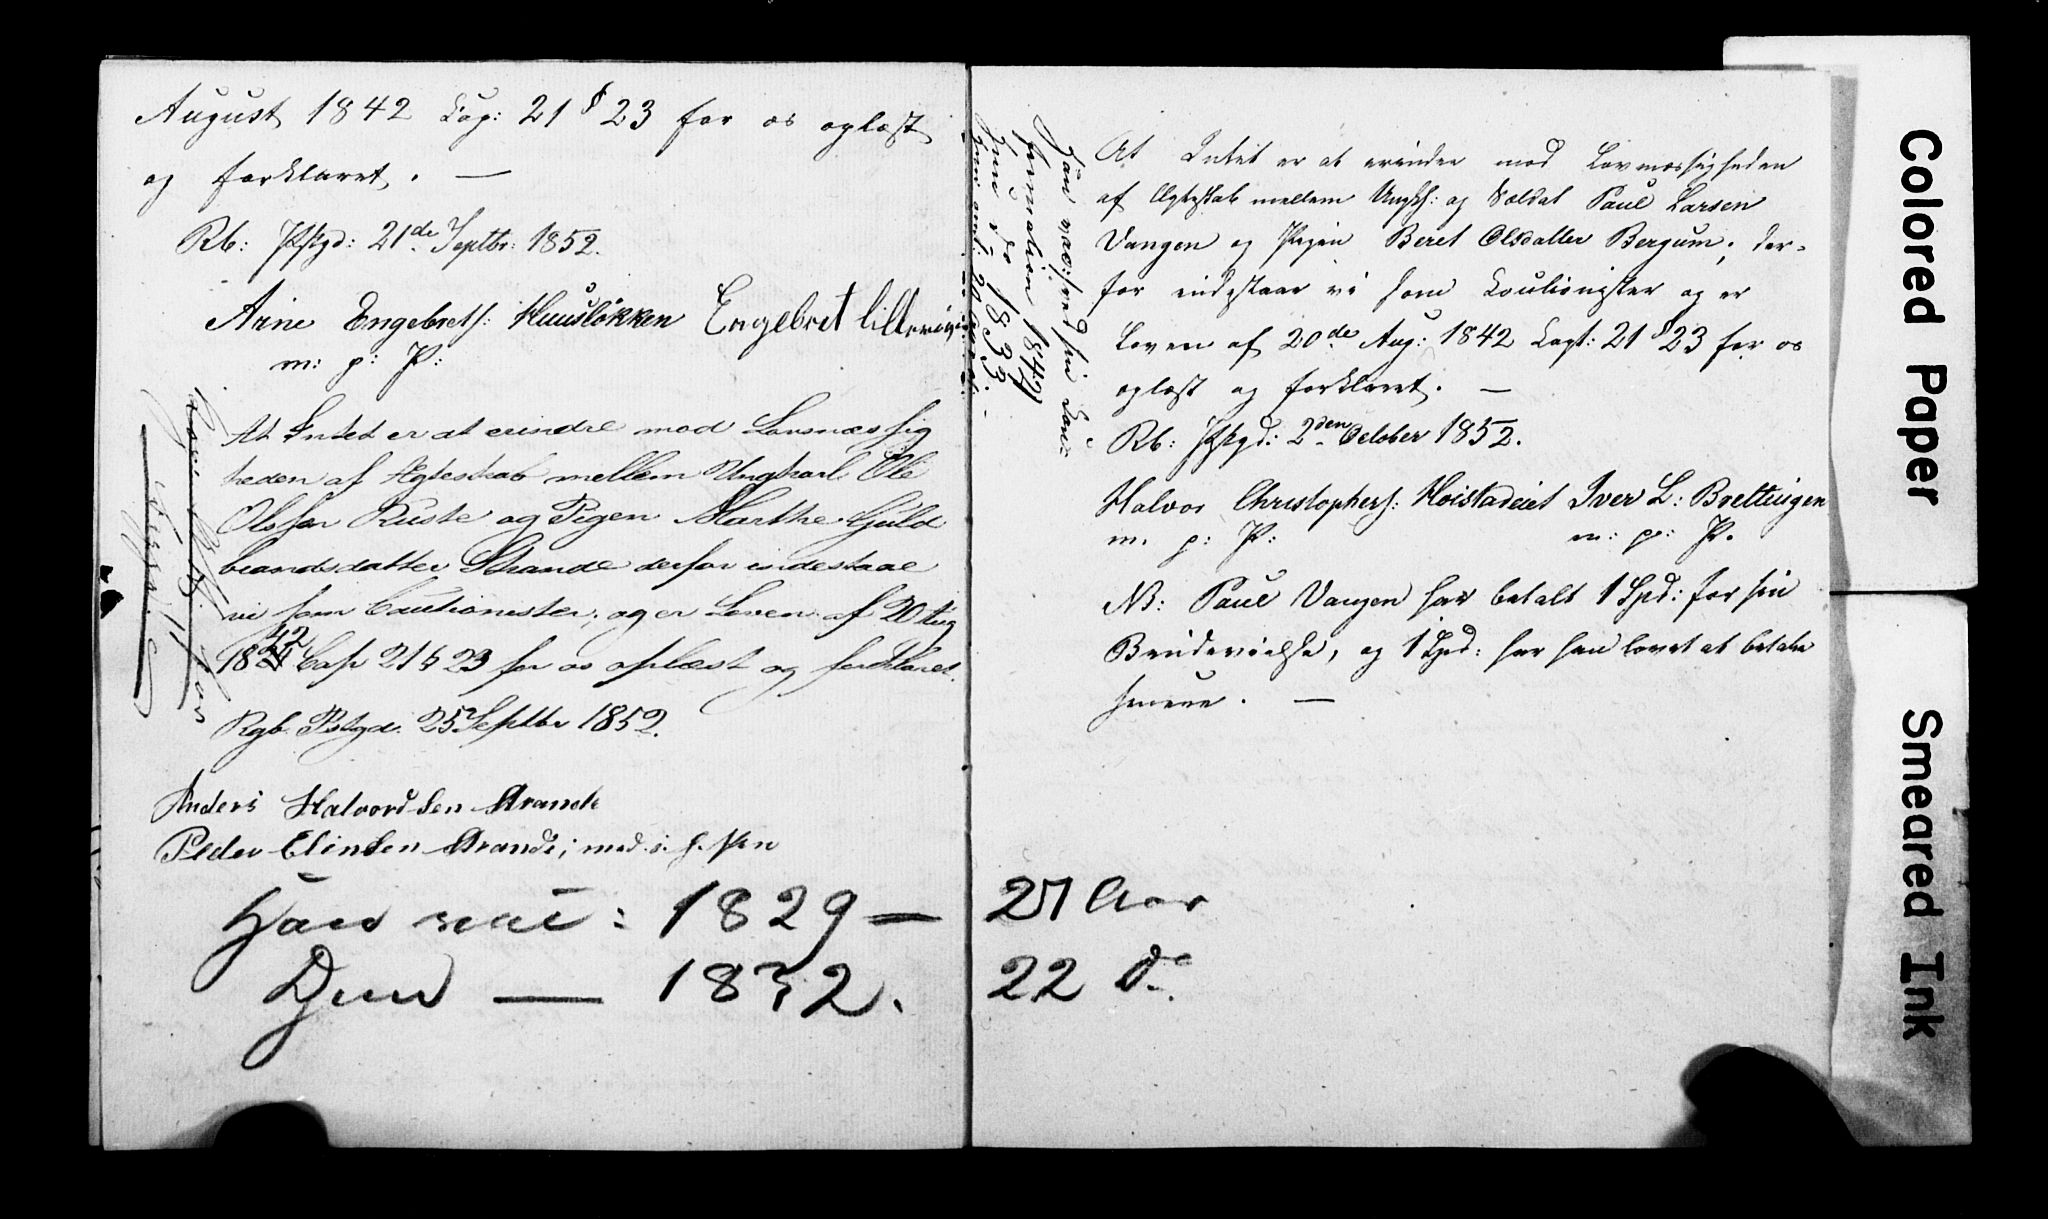 August 1842 Cap: 21 § 23 for os oplæst
og forklaret. —
Rb: Pstgd: 21de Septbr: 1852.
Arne Engebrets: Huusløkken Engebret Lillevig
m: p: P:
At Intet er at erindre mod Lovmæssig
heden af Ægteskab mellem Ungkarl Ole
Olssøn Ruste og Pigen Marthe Guld
brandsdatter Strande derfor indestaae
vi som Cautionister, og er Loven af 20 Aug
1842 Cap 21 § 23 for os oplæst og forklaret.
Rgb. Pstgd. 25 Septbr 1852.
Anders Halvordsen Strande
Peder Elinsen Strande; med i. h. Pen
Han vac: 1829 —
Hun — 1832.
Han vac: ved sin Con:
firmation 1842
Hun do 1833
At Intet er at erindre mod Lovmæssigheden
af Ægteskab mellem Ungk: og Soldat Paul Larsen
Vangen og Pigen Beret Olsdatter Bergum; der-
for indestaar vi som Cautionister og er
Loven af 20de Aug: 1842 Capt: 21 § 23 for os
oplæst og forklaret. —
Rb: Pstgd: 2den October 1852.
Halvor Christophers: Hoistadeiet Iver L: Brettingen
m. p: P: m: p: P.
NB: Paul Vangen har betalt 1 Spd: for sin
Brudevielse, og 1 Spd: har han lovet at betale
senere. —
27 Aar
22 do
Colored Paper
Smeared Ink